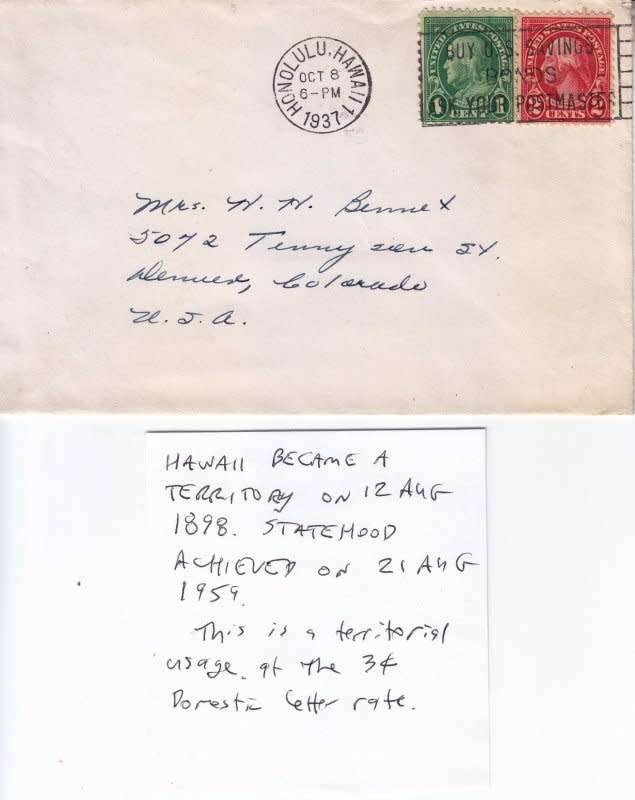 HONOLULU, HAWAII 1
OCT 8
6-PM
1937
UNITED STATES POSTAGE
1 CENT 1
UNITED STATES POSTAGE
2 CENTS 2
BUY U.S. SAVINGS
BONDS
ASK YOUR POSTMASTER
Mrs. H. H. Bennet
5072 Tennyson St.
Denver, Colorado
U.S.A.
HAWAII BECAME A
TERRITORY ON 12 AUG
1898. STATEHOOD
ACHIEVED ON 21 AUG
1959.
This is a territorial
usage. at the 3¢
Domestic letter rate.